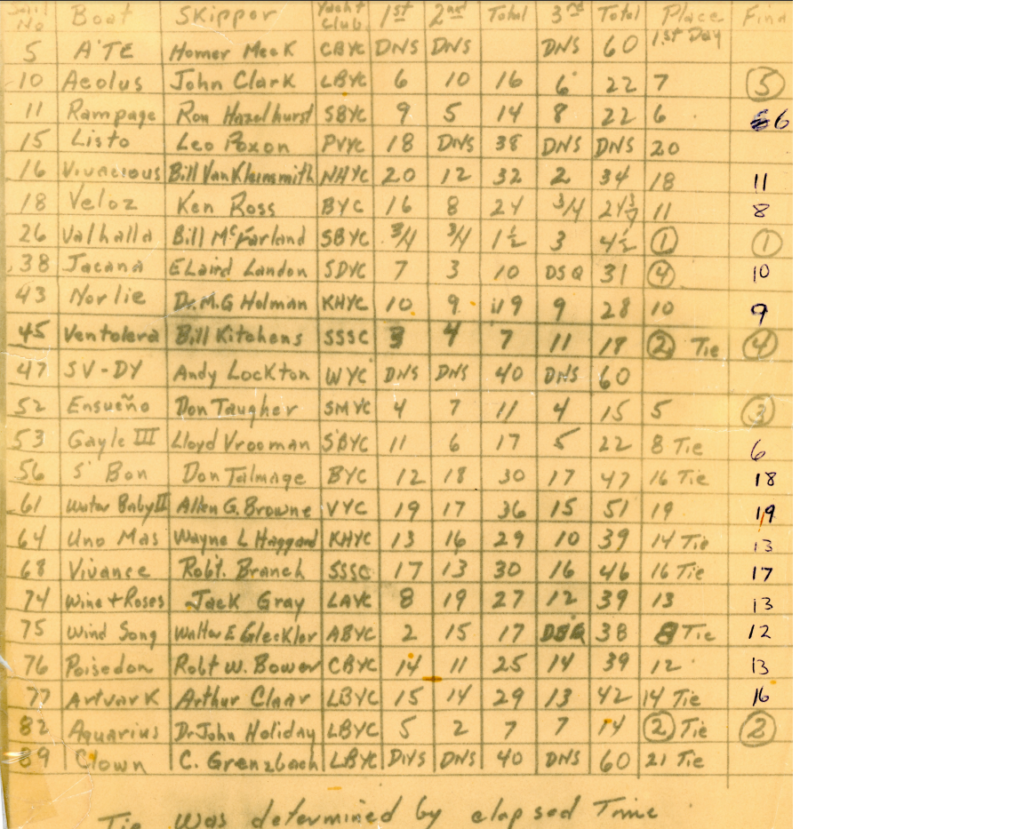 Sail No Boat Skipper Yacht Club. 1st 2nd Total 3rd Total Place 1st Day Final
5 A'TE Homer Meek CBYC DNS DNS DNS 60
10 Aeolus John Clark LBYC 6 10 16 6 22 7 5
11 Rampage Ron Hazelhurst SBYC 9 5 14 8 22 6 6
15 Listo Leo Poxon PVYC 18 DNS 38 DNS DNS 20
16 Vivacious Bill Van NHYC 20 12 32 2 34 18 11
18 Veloz Ken Ross BYC 16 8 24 3/4 11 8
26 Valhalla Bill McFarland SBYC 3/4 3/4 1 1/2 3 4 1/2 1 1
38 Jacana E Laird Landon SDYC 7 3 10 DSQ 31 4 10
43 Norlie Dr. M.G Holman KHYC 10 9 19 9 28 10 9
45 Ventolera Bill Kitchens SSSC 3 4 7 11 18 2 Tie 4
47 SV-DY Andy Lockton WYC DNS DNS 40 DNS 60
52 Ensueño Don Taugher SMYC 4 7 11 4 15 5 3
53 Gayle III Lloyd Vrooman SBYC 11 6 17 5 22 8 Tie 6
56 S' Bon Don Talmage BYC 12 18 30 17 47 16 Tie 18
61 Water Baby II Allen G. Browne VYC 19 17 36 15 51 19 19
64 Uno Mas Wayne L Haggard KHYC 13 16 29 10 39 14 Tie 13
68 Vivance Robt. Branch SSSC 17 13 30 16 46 16 Tie 17
74 Wine + Roses Jack Gray LAYC 8 19 27 12 39 13 13
75 Wind Song Walter E Gleckler ABYC 2 15 17 DSQ 38 8 Tie 12
76 Poisedon Robt W. Bower CBYC 14 11 25 14 39 12 13
77 Artvark Arthur Claar LBYC 15 14 29 13 42 14 Tie 16
82 Aquarius Dr John Holiday LBYC 5 2 7 7 14 2 Tie 2
89 Clown C. Grenzbach LBYC DNS DNS 40 DNS 60 21 Tie
Tie was determined by elapsed Time